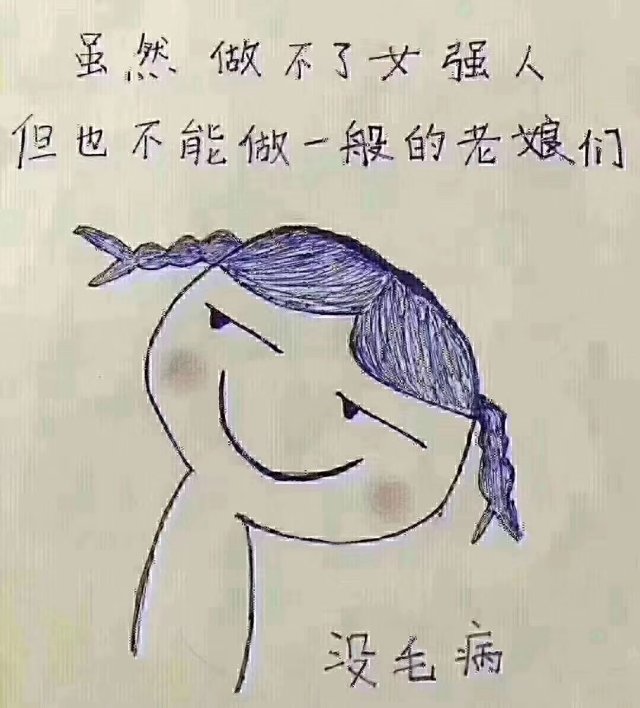 虽然做不了女强人
但也不能做一般的老娘们
没毛病